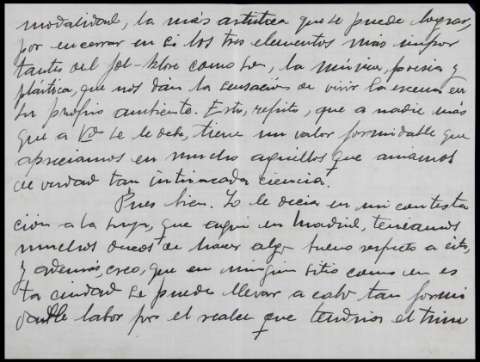 modalidad, la más artística que se puede lograr,
por encerrar en sí los tres elementos más impor
tantes del fol-klore como son, la música, poesía y
plástica, que nos dan la sensación de vivir la escena en
su propio ambiente. Esto, repito, que a nadie más
que a Vd se le debe, tiene un valor formidable que
apreciamos en mucho aquellos que amamos
de verdad tan intrincada ciencia.
Pues bien. Yo le decía en mi contesta
ción a la suya, que aquí en Madrid, teníamos
muchos deseos de hacer algo bueno respecto a ésto,
y además, creo, que en ningún sitio como en es
ta ciudad se puede llevar a cabo tan formi
dable labor por el realce que tendría el triun